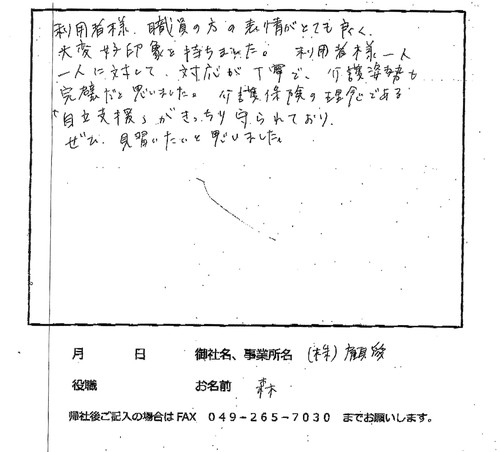 利用者様、職員の方の表情がとても良く、
大変好印象を持ちました。 利用者様一人
一人に対して、対応が丁寧で、介護姿勢も
完璧だと思いました。 介護保険の理念である
「自立支援」がきっちり守られており、
ぜひ、見習いたいと思いました。
月 日 御社名、事業所名 (株)顧愛
役職 お名前 森
帰社後ご記入の場合はFAX 049-265-7030 までお願いします。